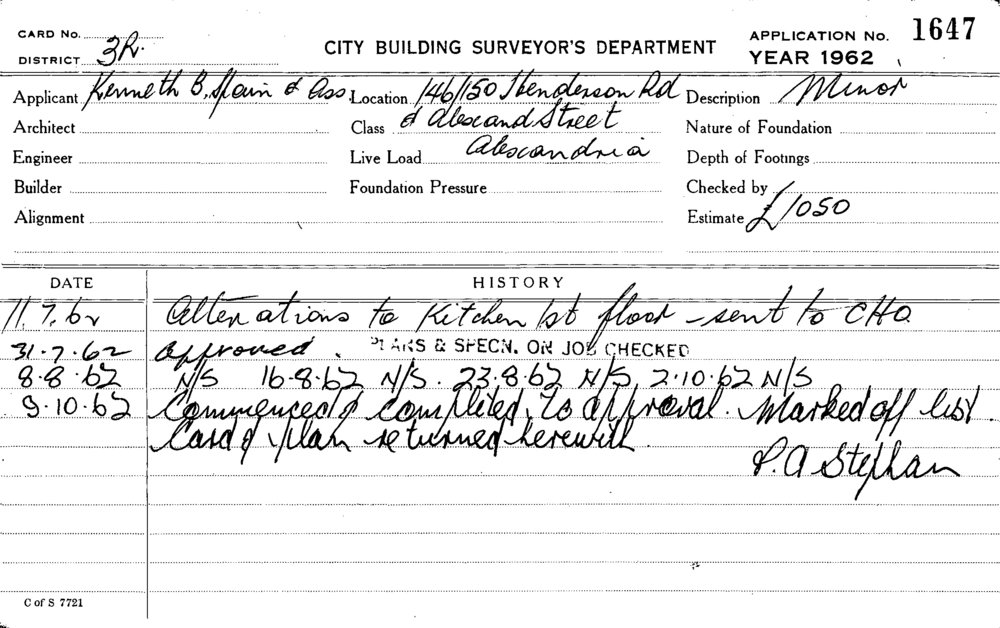 CARD No.
DISTRICT 3R.
CITY BUILDING SURVEYOR'S DEPARTMENT
APPLICATION No. 1647
YEAR 1962
Applicant Kenneth B. Spain & Ass. Location 146/150 Henderson Rd Description Minor
Architect Class & Alexand Street Nature of Foundation
Engineer Live Load Alexandria Depth of Footings
Builder Foundation Pressure Checked by
Alignment Estimate £1050
DATE HISTORY
11.7.62 Alterations to Kitchen 1st floor - sent to CHO
31.7.62 approved. PLANS & SPECN. ON JOB CHECKED
8.8.62 N/S 16.8.62 N/S. 23.8.62 N/S 2.10.62 N/S
3.10.62 Commenced & completed to approval. Marked off list.
Card & plan returned herewith.
P.A Stephan
C of S 7721